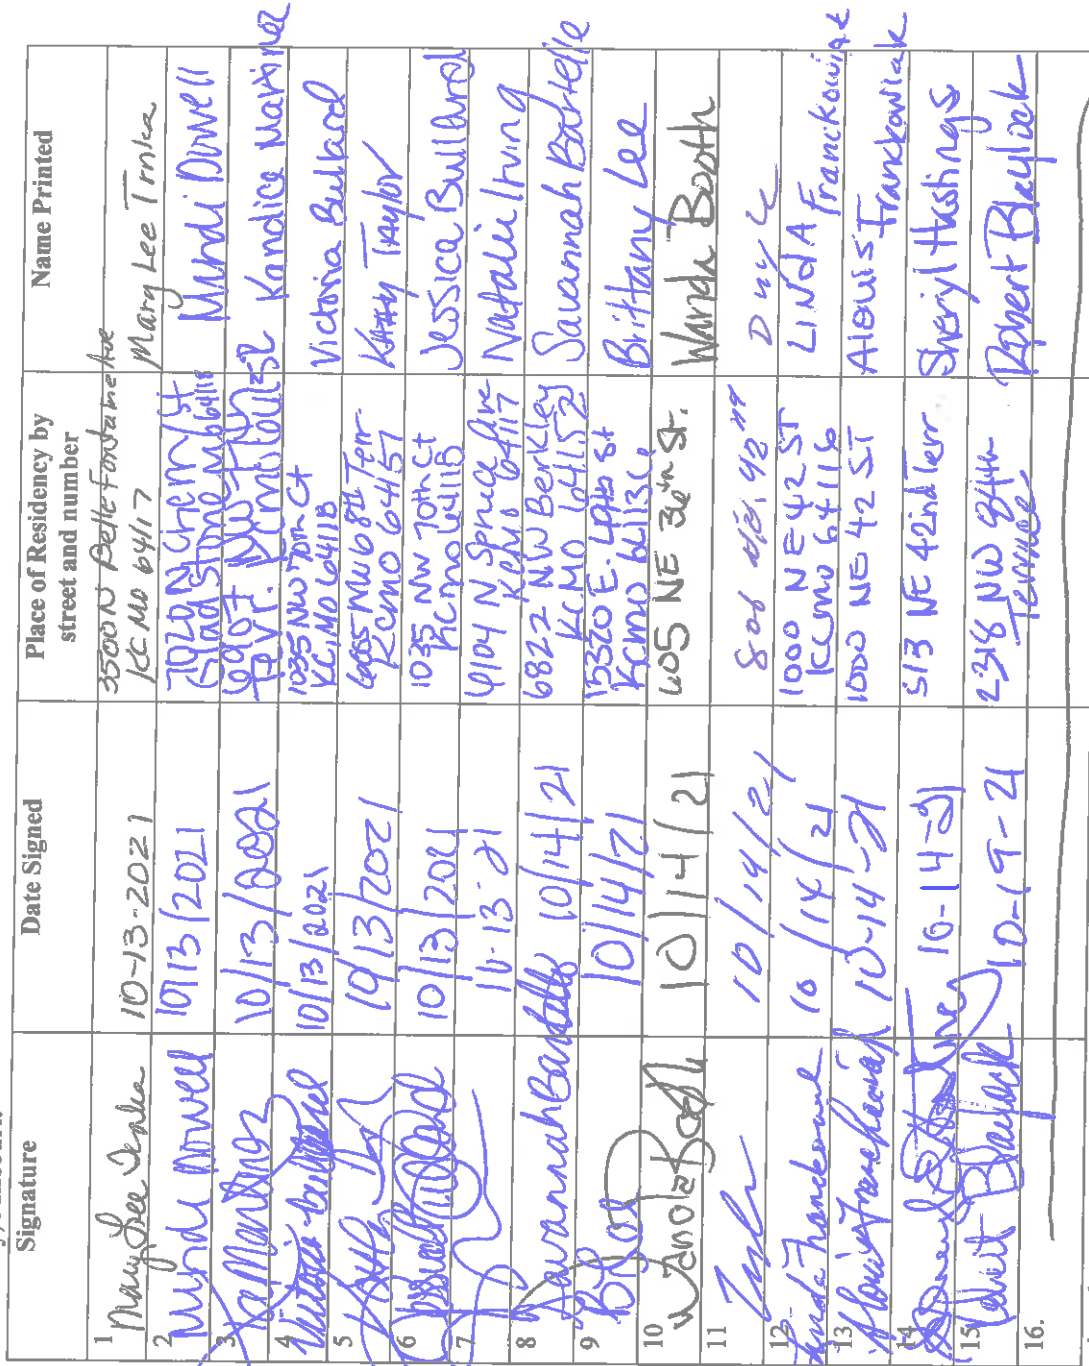 Signature
Date Signed
Place of Residency by
street and number
Name Printed
1
Mary Lee Trnka
10-13-2021
3500 N Bellefontaine Ave
KC MO 64117
Mary Lee Trnka
2
Mundi Dowell
10/13/2021
7020 N Cherry St
Gladstone Mo 64118
Mundi Dowell
3
10/13/2021
Kandice Martinez
4
Victoria Bullard
10/13/2021
1035 NW 70th Ct
KC, MO 64118
Victoria Bullard
5
10/13/2021
NW 68th Terr
KCMO 64157
Kathy Taylor
6
10/13/2021
1035 NW 70th Ct
KCMO 64118
Jessica Bullard
7
10-13-21
4104 N Spruce Ave
KCMO 64117
Natalie Irving
8
Savannah Bartelle
10/14/21
6822 NW Berkley
KCMO 64152
Savannah Bartelle
9
10/14/21
15320 E. 40th St
KCMO 64136
Brittany Lee
10
Wanda Booth
10/14/21
605 NE 36th St.
Wanda Booth
11
10/14/21
12
10/14/21
1000 NE 42 ST
KCMO 64116
LINDA Franckowiak
13
10-14-21
1000 NE 42 ST
Alouis Franckowiak
14
10-14-21
513 NE 42nd Terr
Sheryl Hastings
15
10-19-21
2318 NW 84th
Terrace
Robert Blaylock
16.